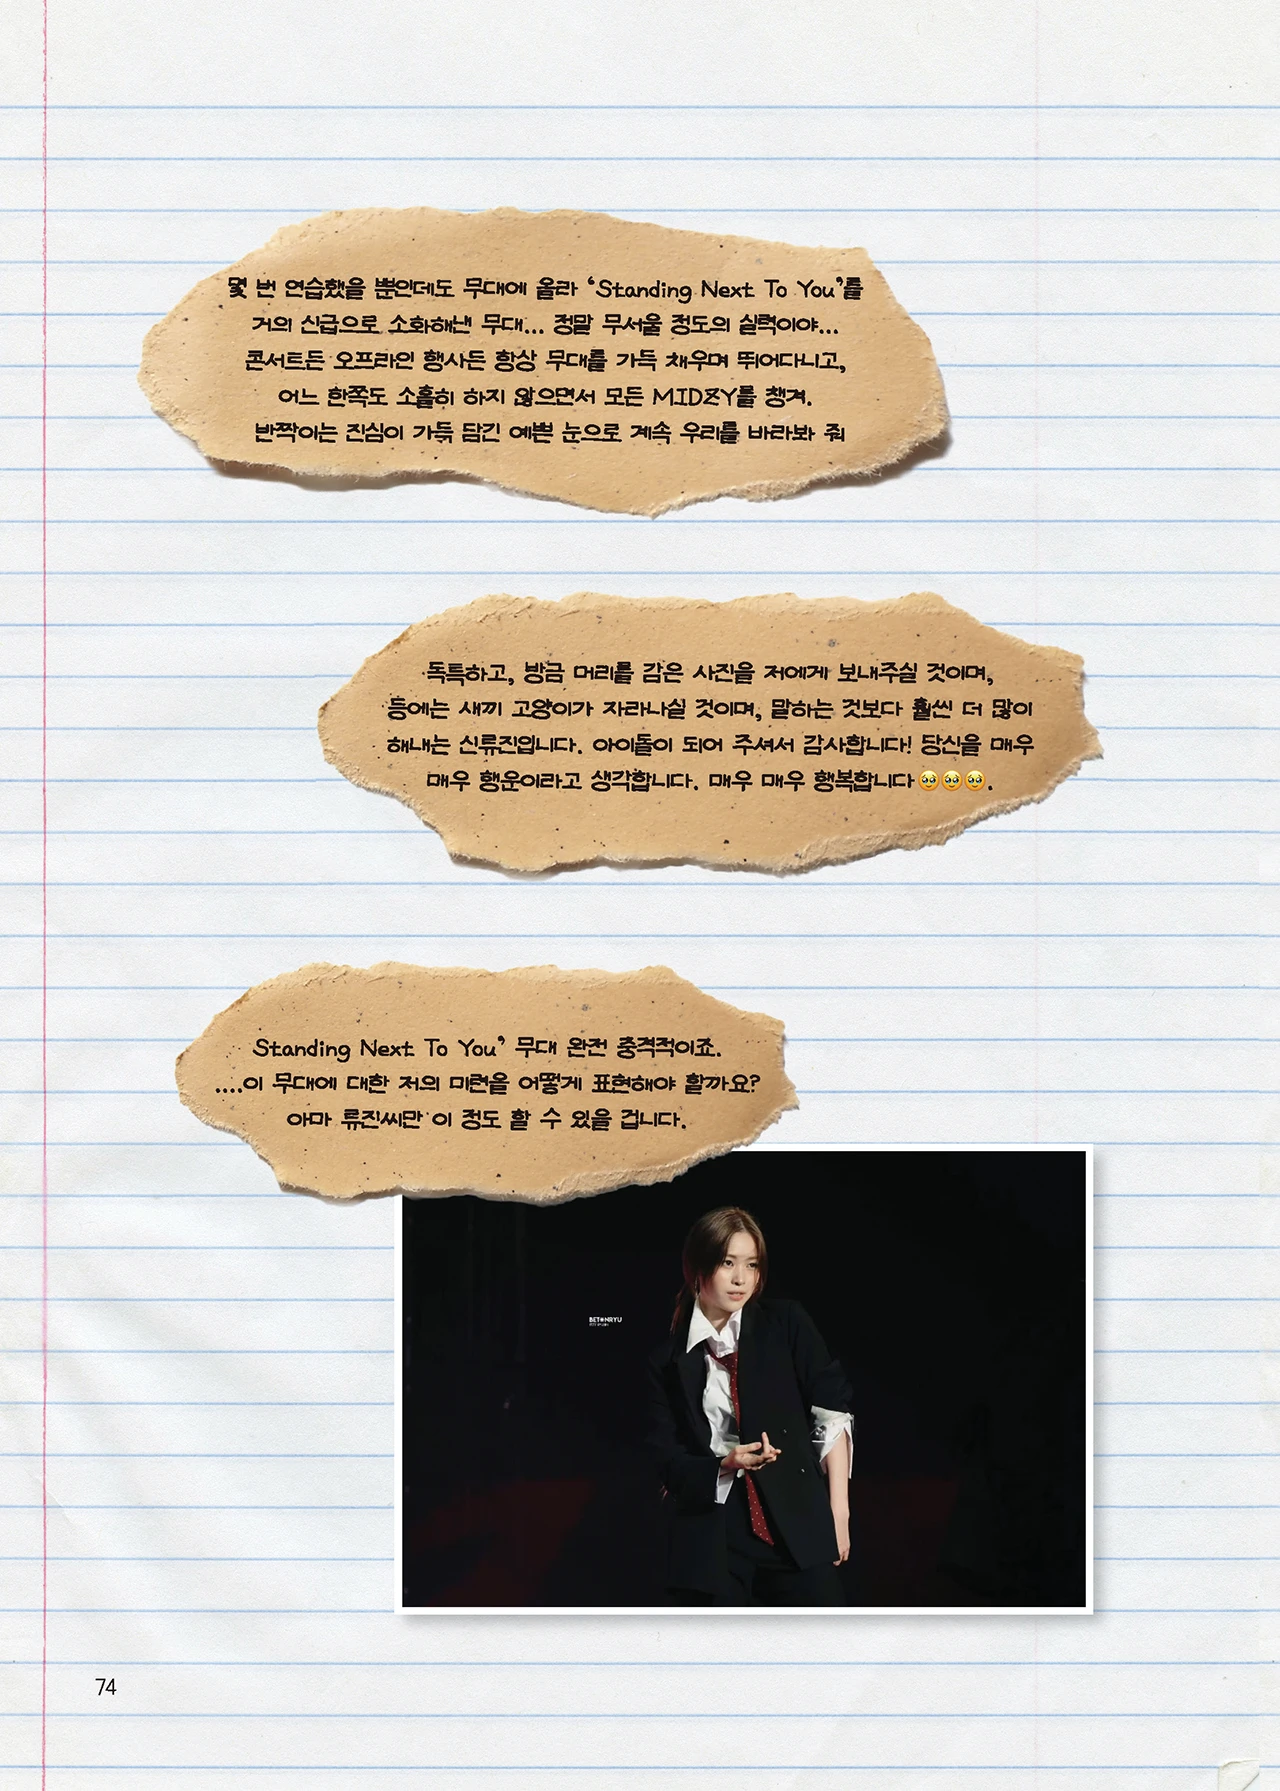 몇 번 연습했을 뿐인데도 무대에 올라 ‘Standing Next To You’를
거의 신급으로 소화해낸 무대... 정말 무서울 정도의 실력이야...
콘서트든 오프라인 행사든 항상 무대를 가득 채우며 뛰어다니고,
어느 한쪽도 소홀히 하지 않으면서 모든 MIDZY를 챙겨.
반짝이는 진심이 가득 담긴 예쁜 눈으로 계속 우리를 바라봐 줘
독특하고, 방금 머리를 감은 사진을 저에게 보내주실 것이며,
등에는 새끼 고양이가 자라나실 것이며, 말하는 것보다 훨씬 더 많이
해내는 신류진입니다. 아이돌이 되어 주셔서 감사합니다! 당신을 매우
매우 행운이라고 생각합니다. 매우 매우 행복합니다🥹🥹🥹.
Standing Next To You’ 무대 완전 충격적이죠.
....이 무대에 대한 저의 미련을 어떻게 표현해야 할까요?
아마 류진씨만 이 정도 할 수 있을 겁니다.
BETONRYU
74